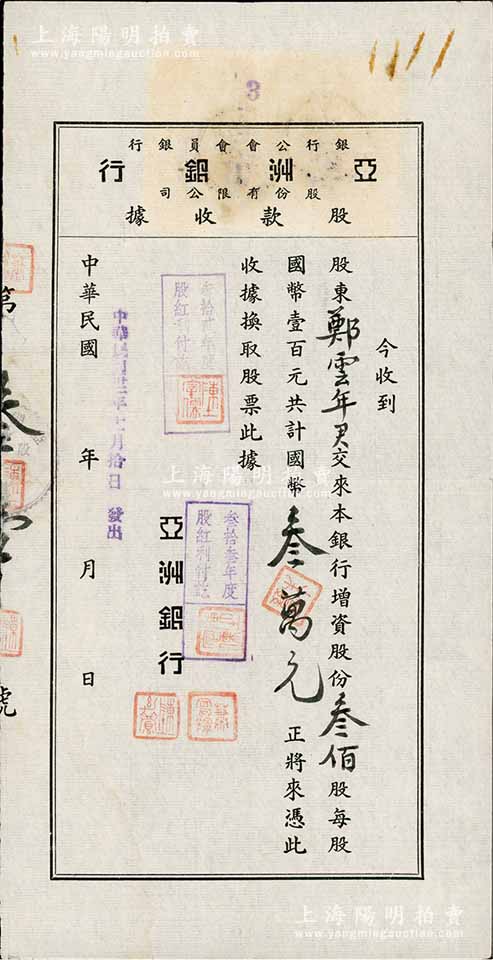 上海陽明拍賣
www.yangmingauction.com
3
銀行公會會員銀行
亞洲銀行
股份有限公司
股款收據
今收到
股東鄭雲年君交來本銀行增資股份叁佰股每股
國幣壹百元共計國幣叁萬元正將來憑此
收據換取股票此據
股紅利付訖
叁拾叁年度
股紅利付訖
亞洲銀行
中華民國卅三年 月拾日 發出
中華民國 年 月 日
第
號
上海陽明拍賣
www.yangmingauction.com
上海陽明拍賣
www.yangmingauction.com